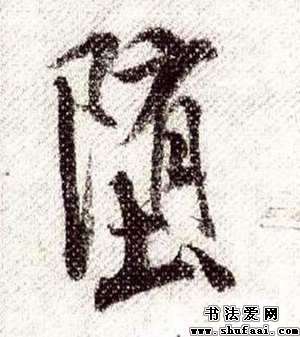 堕
书法爱网
www.shufaai.com